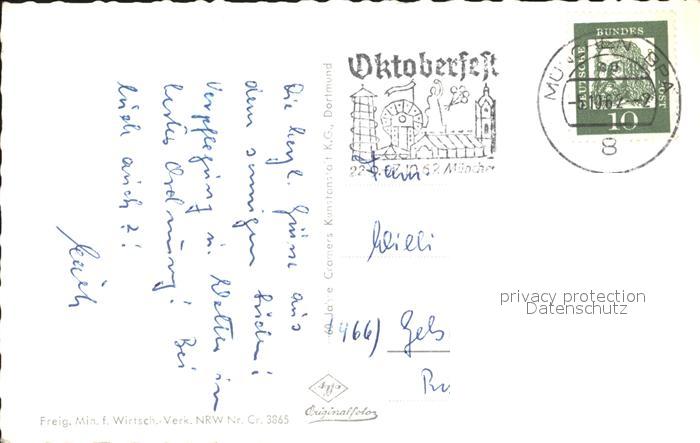 Die herzl. Grüsse aus
dem sonnigen
Verpflegung u. Wetter in
bester Ordnung! Bei
Euch auch?!
60 Jahre Cramers Kunstanstalt K.G., Dortmund
Oktoberfest
22.9.-7.10.62 München
MÜNCHEN
8
DEUTSCHE
BUNDES
POST
10
Willi
(466) Gels
privacy protection
Datenschutz
Agfa
Originalfoto
Freig. Min. f. Wirtsch.-Verk. NRW Nr. Cr. 3865